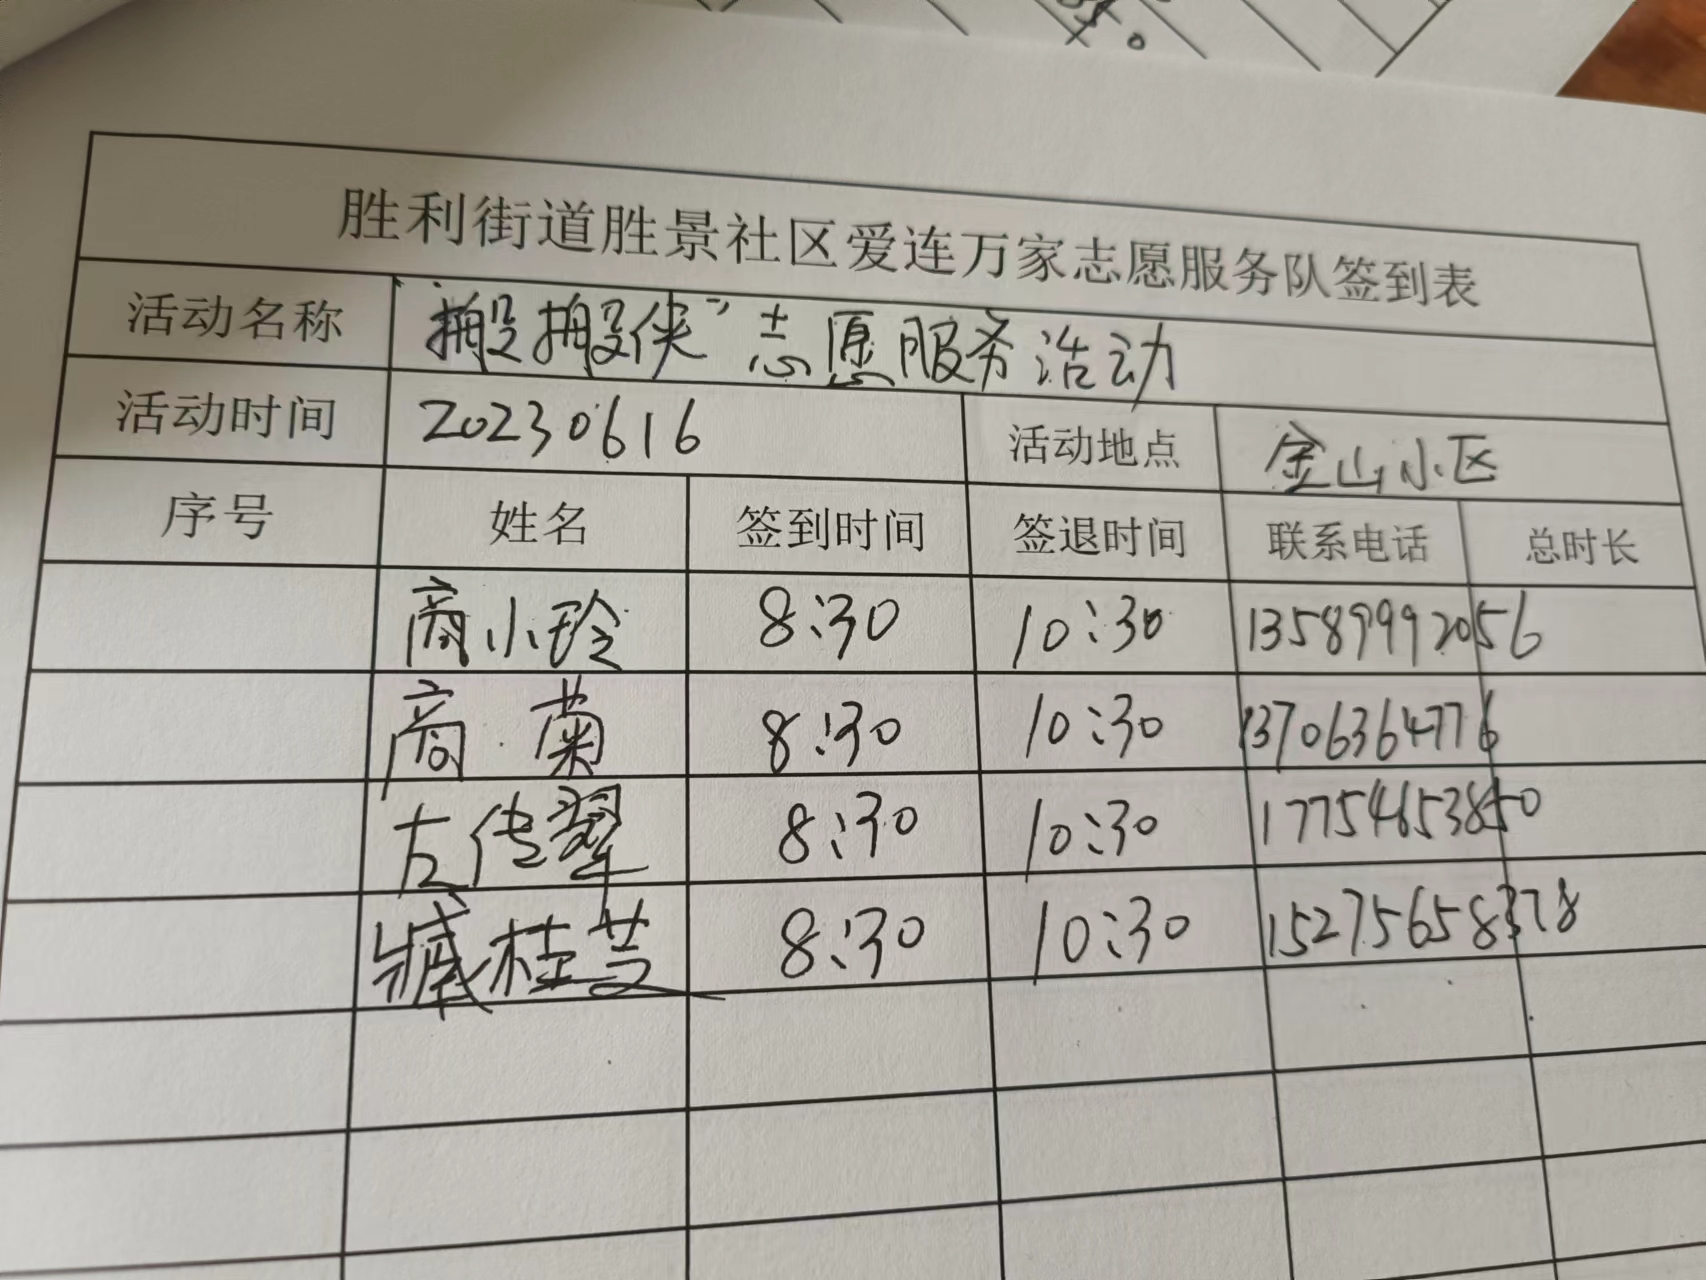 胜利街道胜景社区爱连万家志愿服务队签到表
活动名称 "搬搬侠"志愿服务活动
活动时间 20230616 活动地点 金山小区
序号 姓名 签到时间 签退时间 联系电话 总时长
商小玲 8:30 10:30 13589992056
商菊 8:30 10:30 13706364776
左传翠 8:30 10:30 17754653850
臧桂芝 8:30 10:30 15275658378